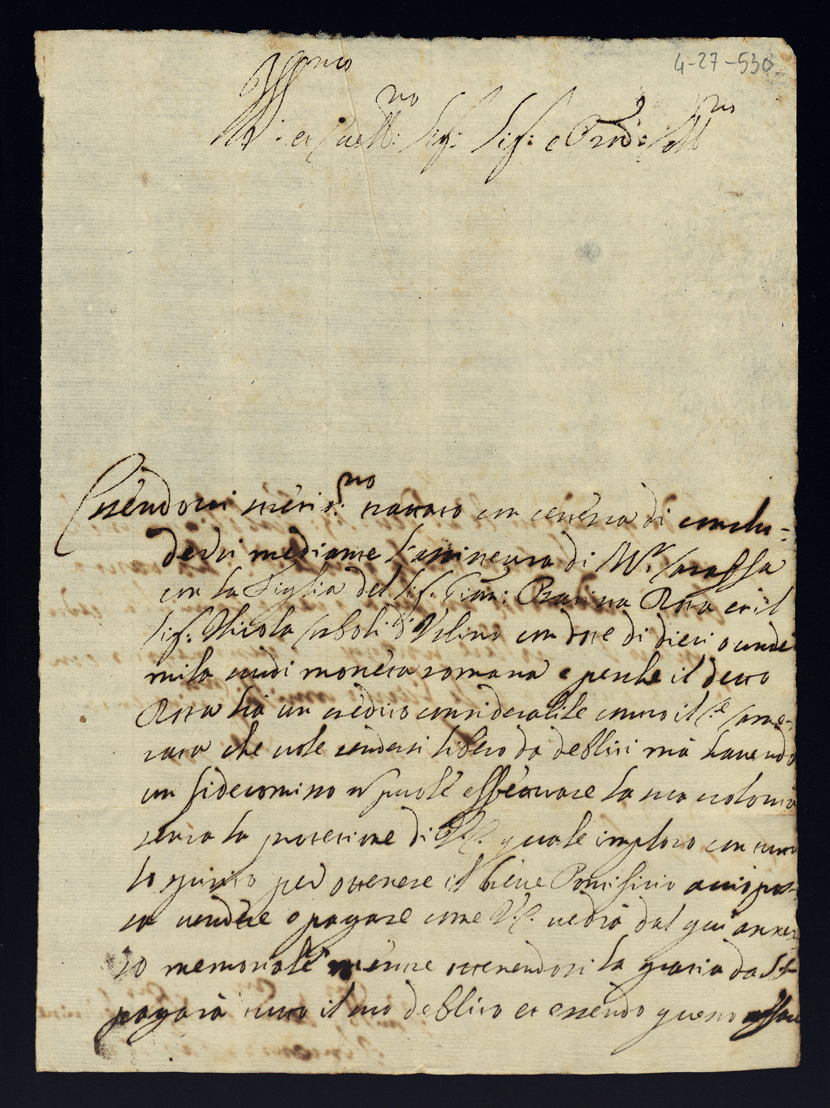 4-27-530
Ill:mo et Ecc:mo Sig: Sig: e Pad: Coll:mo
Essendovi sterio: mo trattato con certezza di conclu=
dersi mediante l'assistenza di M:r Caraffa
con la Figlia del Sig: Gian: Rosa et il
Sig: Nicola d'Velino con dote di dieci o unde
mila scudi moneta romana e perche il detto
Rosa hà un credito considerabile contro il
che vole rendersi libero da debliti mà havendo
un fidecomisso n puole effettuare la sua volontà
senza la protetione di V.E. quale imploro con tutto
lo spirito per ottenere il breve Pontificio acciò pos=
sa vendere e pagare come V.E. vedrà dal qui annes
so memoriale mentre ottenendosi la gratia da
pagarà tutto il suo deblito et essendo questo affare